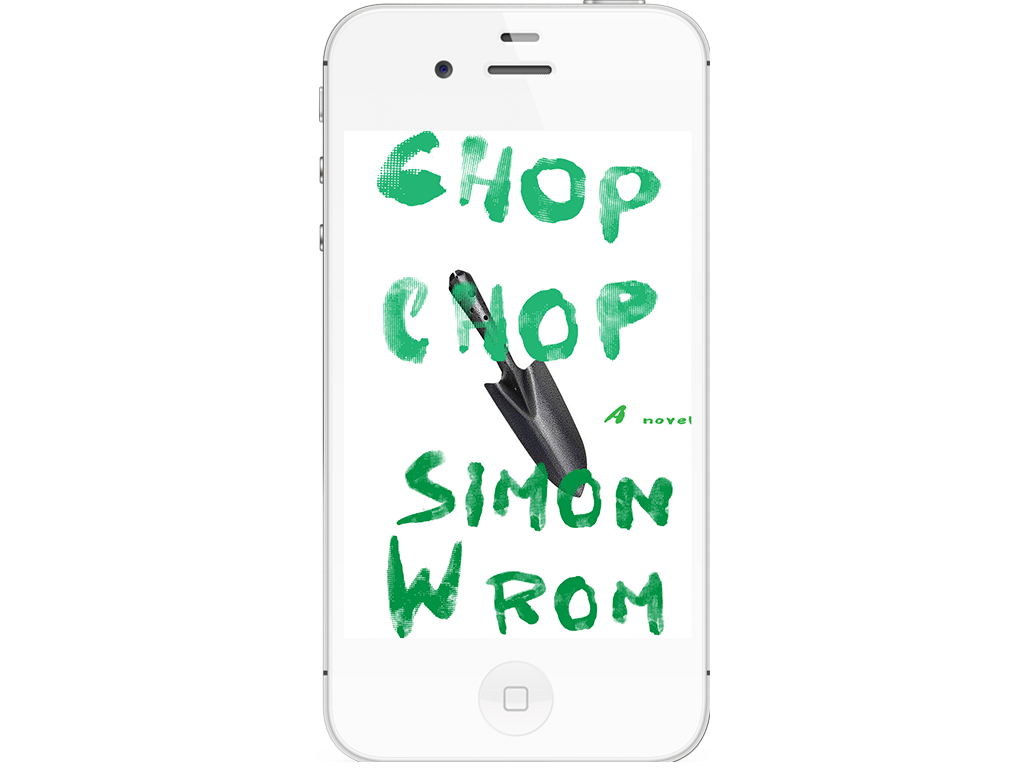 CHOP
CHOP
A novel
SIMON
WROM